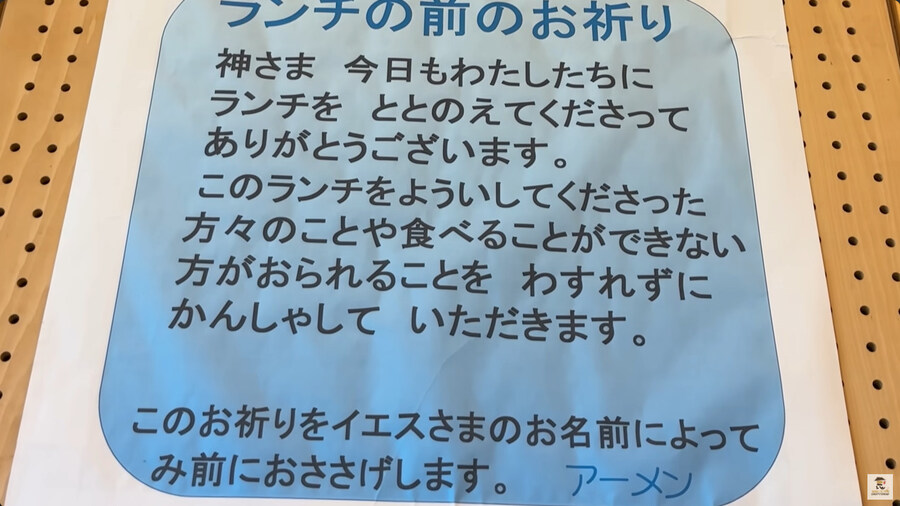 ランチの前のお祈り
神さま　今日もわたしたちに
ランチを　ととのえてくださって
ありがとうございます。
このランチをよういしてくださった
方々のことや食べることができない
方がおられることを　わすれずに
かんしゃして　いただきます。
このお祈りをイエスさまのお名前によって
み前におささげします。　アーメン